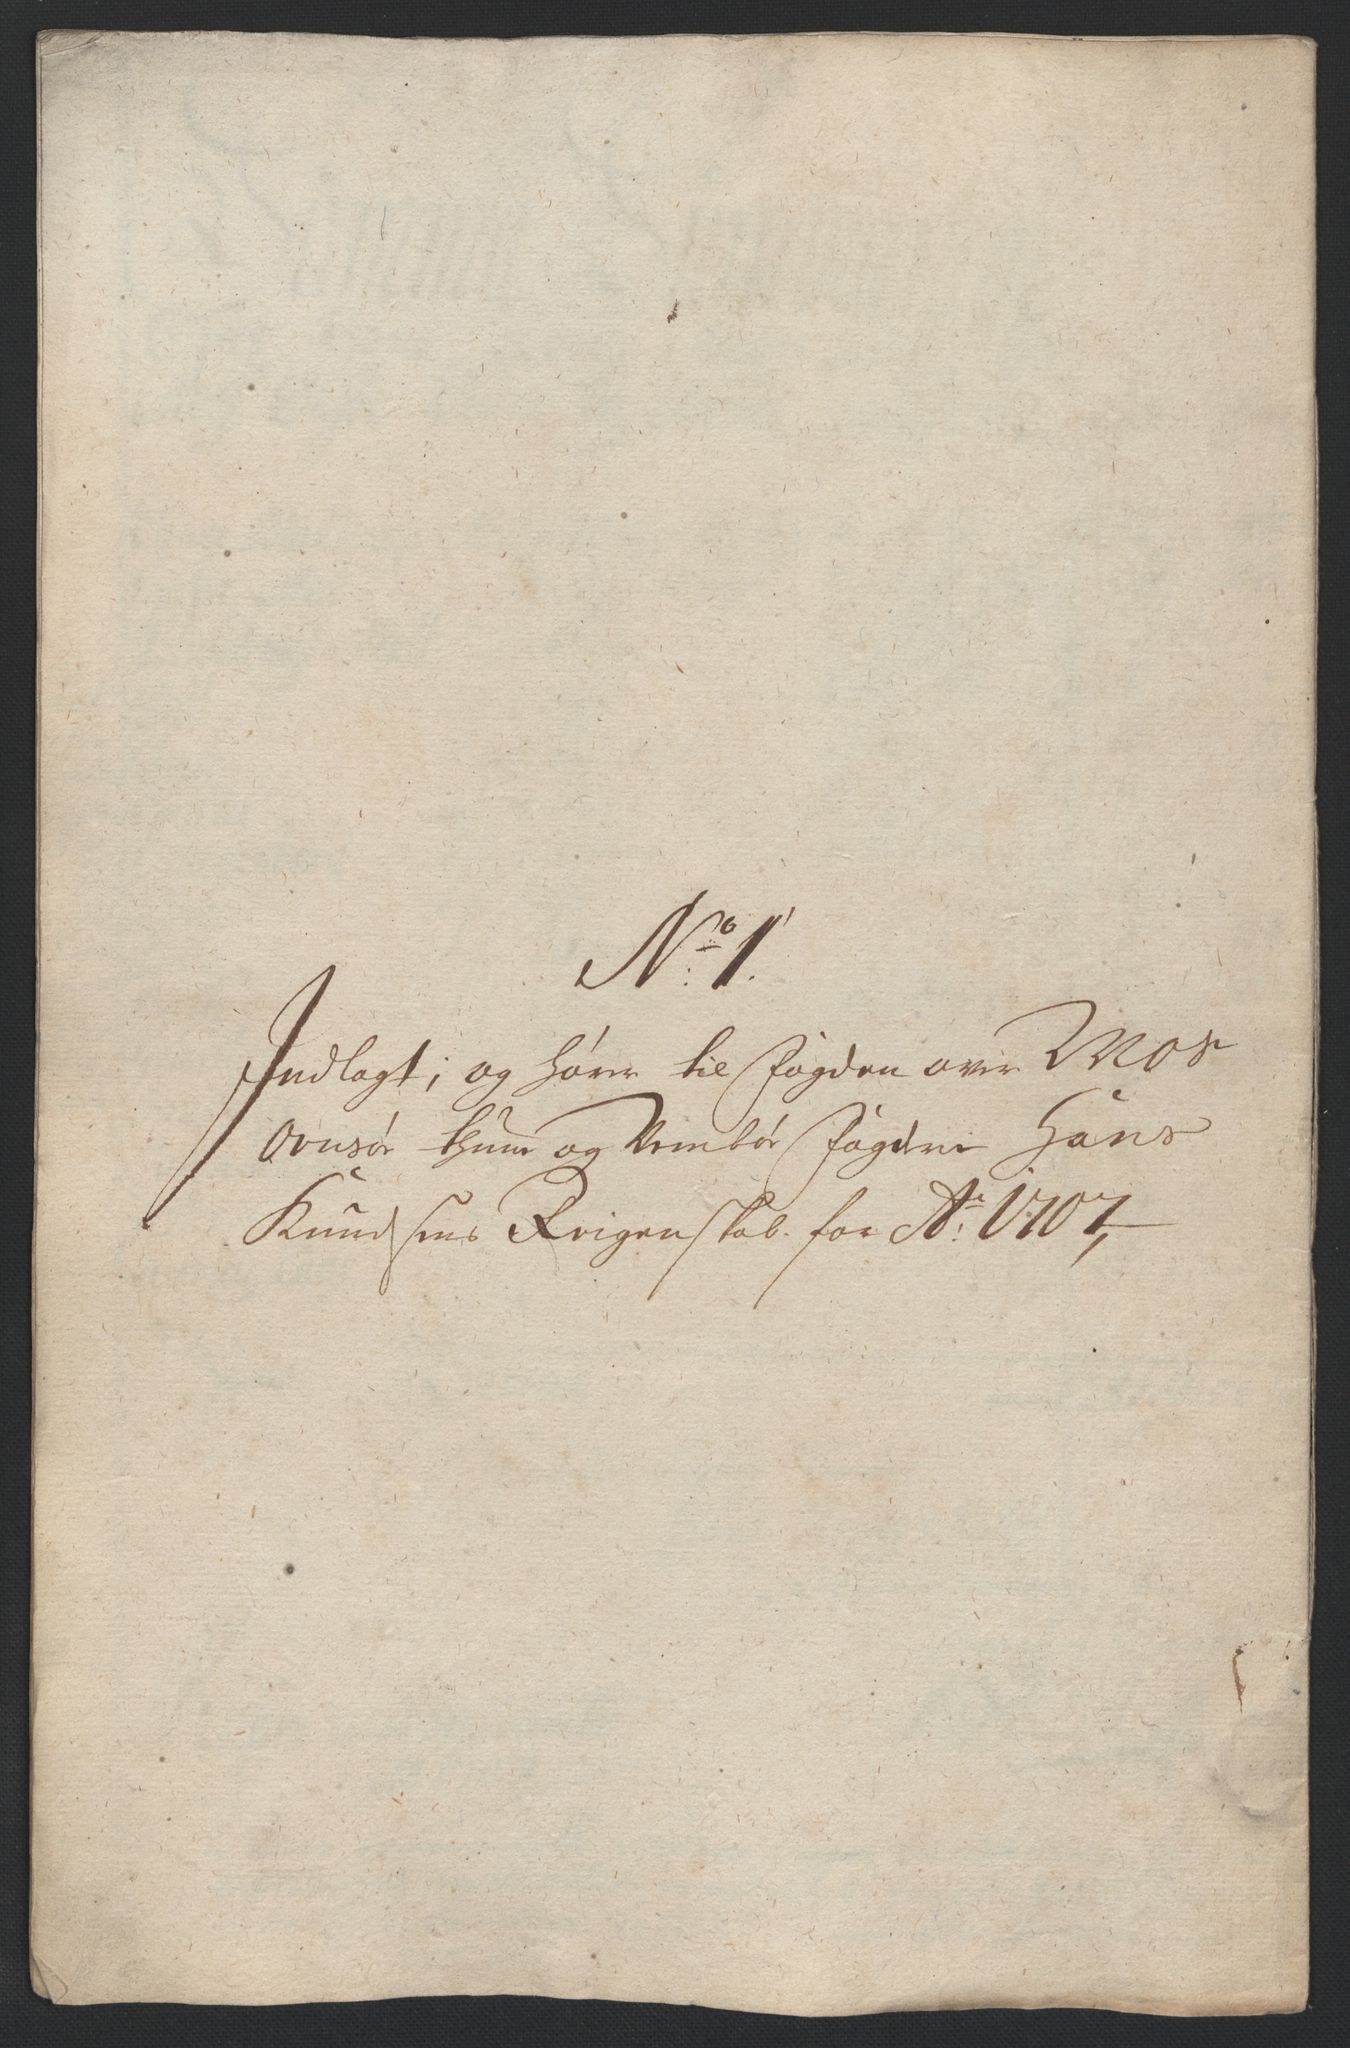 No: 1.
Indlagt, og hører til fogden over Mos
Onsøe thune og Vembøe fogderie Hans
Knudsens Reigenskab for Ao: 1707,